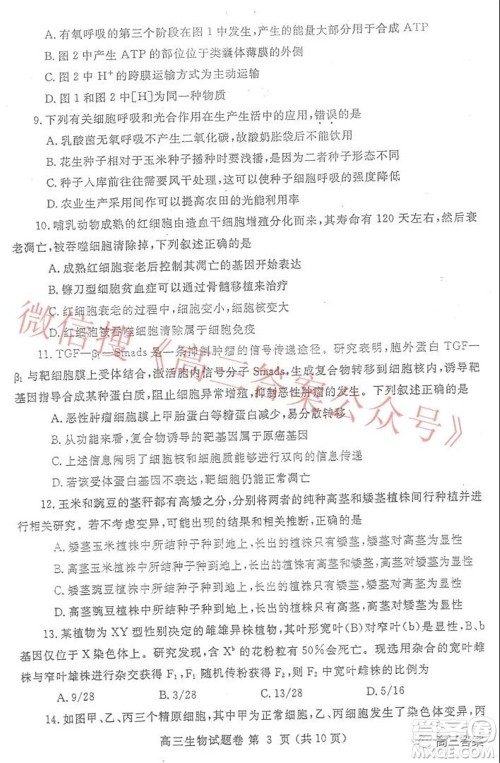 A. 有氧呼吸的第三个阶段在图 1 中进行，产生的能量大部分用于合成 ATP
B. 图 2 中产生 ATP 的部位位于类囊体薄膜的外侧
C. 图 2 中 H⁺ 的跨膜运输方式为主动运输
D. 图 1 和图 2 中[H]为同一种物质
9. 下列有关细胞呼吸和光合作用在生产生活中的应用，错误的是
A. 乳酸菌无氧呼吸不产生二氧化碳，故酸奶胀袋后不能饮用
B. 花生种子相对于玉米种子播种稍浅，原因之一是二者的种子形态不同
C. 种子入库前往往进行干燥处理，以降低有氧呼吸强度
D. 农业生产采用可以提高农田的光能利用率
10. 哺乳动物成熟的红细胞由造血干细胞增殖分化而来，其寿命有 120 天左右，然后衰
老凋亡，被吞噬细胞清除掉，下列叙述正确的是
A. 成熟红细胞衰老后控制其凋亡的基因开始表达
B. 镰刀型细胞贫血症可以通过骨髓移植来治疗
C. 红细胞衰老的过程中，细胞变小，细胞核变大
D. 红细胞被吞噬细胞清除属于细胞坏死
11. TGF—β₁—Smads 是一条抑制肿瘤的信号传递途径。研究表明，胞外蛋白 TGF—
β₁ 与靶细胞膜上受体结合，激活胞内信号分子 Smads，生成复合物转移到细胞核内，诱导靶
基因指导合成某种蛋白质，阻止细胞异常增殖，抑制恶性肿瘤的发生。下列叙述错误的是
A. 恶性肿瘤细胞膜上甲胎蛋白等物质增多，糖蛋白减少，易分散转移
B. 从功能来看，复合物诱导的靶基因属于原癌基因
C. 上述信息阐明了细胞核与细胞质之间存在信息传递
D. 若该受体蛋白基因不表达，靶细胞仍能正常凋亡
12. 玉米和豌豆的茎秆都有高矮之分，分别将两者的纯种高茎和矮茎植株间行种植并进
行相关研究。若不考虑变异，可能出现的结果和相关推断，正确的是
A. 矮茎玉米植株中所结种子种到地上，长出的植株只有矮茎，矮茎为显性
B. 高茎玉米植株中所结种子种到地上，长出的植株有高茎和矮茎，高茎为显性
C. 矮茎豌豆植株中所结种子种到地上，长出的植株有高茎和矮茎，矮茎为显性
D. 高茎豌豆植株中所结种子种到地上，长出的植株只有高茎，高茎为显性
13. 某植物为 XY 型性别决定的雌雄异株植物，其叶形宽叶(B)对窄叶(b)为显性，B、b
基因仅位于 X 染色体上。研究发现，含 Xᵇ 的花粉粒有 50％会死亡。现选用杂合的宽叶雌株
与窄叶雄株进行杂交获得 F₁，F₁ 随机传粉获得 F₂，则 F₂ 中宽叶雌株的比例为
A. 9/28 B. 13/28 C. 13/36 D. 5/16
14. 如图甲、乙、丙三个精原细胞，甲、丙细胞中发生了相应的变异，乙细胞正常。
高三生物试题卷 第 3 页 (共 10 页)
微信搜《高三答案公众号》
高三答案